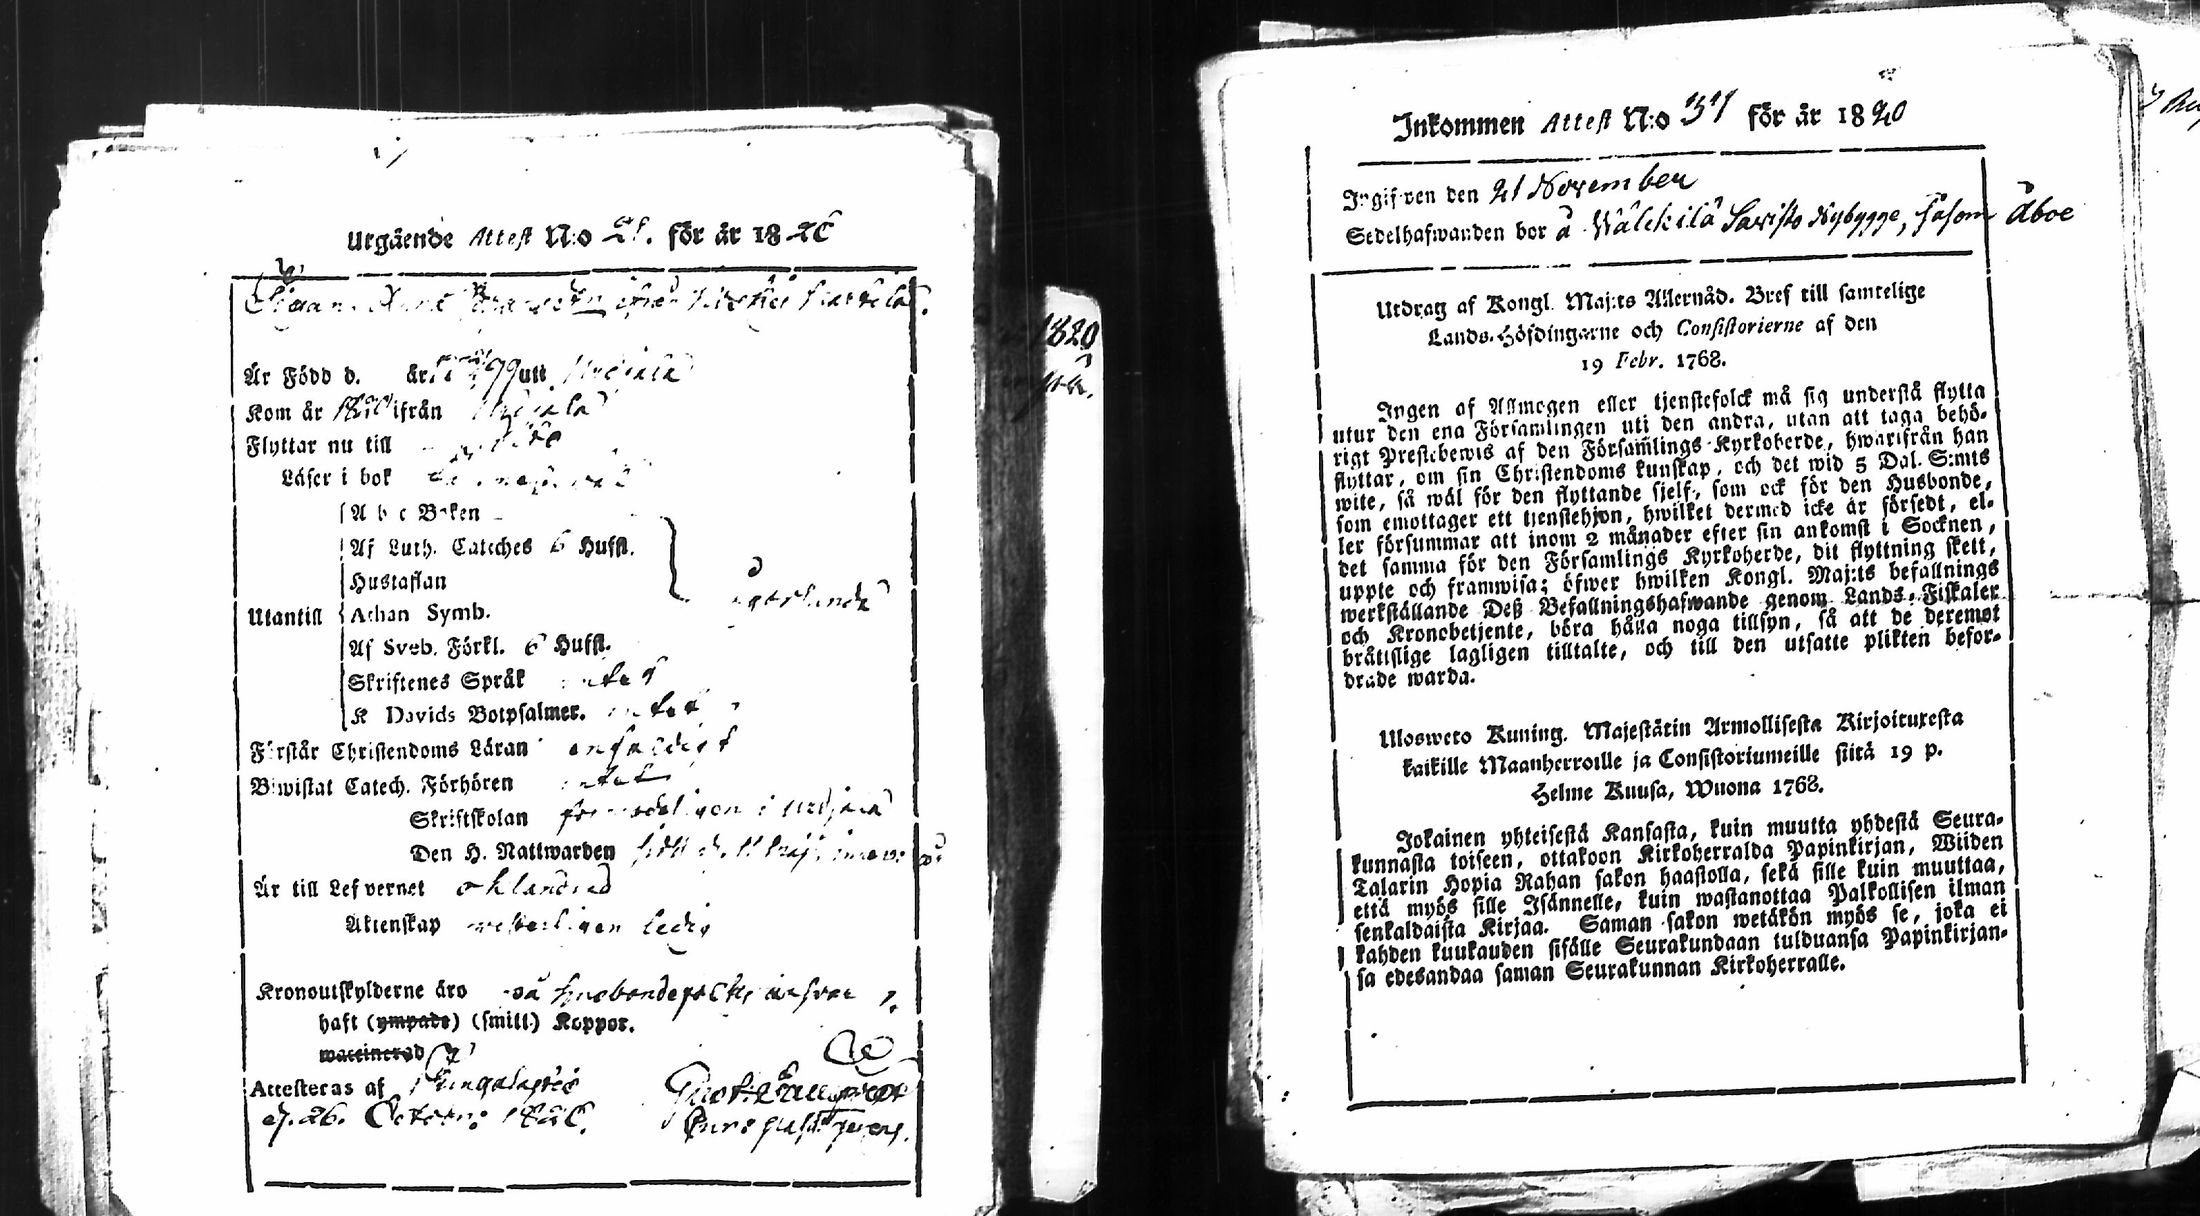 Utgående Attest N:o 21. för år 1820
Pigan Anna
Är Född d. år 1799 uti Urdiala
Kom år 1820 ifrån Urdiala
Flyttar nu till
Läser i bok
A b c Boken
Af Luth. Cateches 6 Hufst.
Hustaflan
Utantill Athan Symb.
Af Sveb. Förkl. 6 Hufst.
Skriftenes Språk intet
K Davids Botpsalmer. intet
Förstår Christendoms Läran enfaldigt
Biwistat Catech. Förhören intet
Skriftskolan förmodeligen i Urdjala
Den H. Nattwarden
Är till Lefvernet oklandrad
Äktenskap wetterligen ledig
Kronoutskylderne äro på husbondefolkets ansvar
haft (ympade) (smitt.) Koppor.
waccinerad
Attesteras af
d. 26. October 1820.
1820
Inkommen Attest N:o 37 för år 1820
Ingifven den 21 November
Sedelhafwanden bor å Wälckilä Savisto Nybygge, såsom Åboe
Utdrag af Kongl. Maj:ts Allernåd. Bref till samtelige
Lands-Höfdingarne och Consistorierne af den
19 Febr. 1768.
Ingen af Allmogen eller tjenstefolck må sig understå flytta
utur den ena Församlingen uti den andra, utan att taga behö-
rigt Prestebewis af den Församlings Kyrkoherde, hwarifrån han
flyttar, om sin Christendoms kunskap, och det wid 5 Dal. S:mts
wite, så wäl för den flyttande sjelf, som ock för den Husbonde,
som emottager ett tjenstehjon, hwilket dermed icke är försedt, el-
ler försummar att inom 2 månader efter sin ankomst i Socknen,
det samma för den Församlings Kyrkoherde, dit flyttning skett,
uppte och framwisa; öfwer hwilken Kongl. Maj:ts befallnings
werkställande Deß Befallningshafwande genom Lands-Fiskaler
och Kronobetjente, böra hålla noga tillsyn, så att de deremot
bråttslige lagligen tilltalte, och till den utsatte plikten befor-
drade warda.
Ulosweto Kuning. Majestätin Armollisesta Kirjoituxesta
kaikille Maanherroille ja Consistoriumeille siitä 19 p.
Helme Kuusa, Wuona 1768.
Jokainen yhteisestä Kansasta, kuin muutta yhdestä Seura-
kunnasta toiseen, ottakoon Kirkoherralda Papinkirjan, Wiiden
Talarin Hopia Rahan sakon haastolla, sekä sille kuin muuttaa,
että myös sille Isännelle, kuin wastanottaa Palkollisen ilman
senkaldaista Kirjaa. Saman sakon wetäkön myös se, joka ei
kahden kuukauden sisälle Seurakundaan tulduansa Papinkirjan-
sa edesandaa saman Seurakunnan Kirkoherralle.